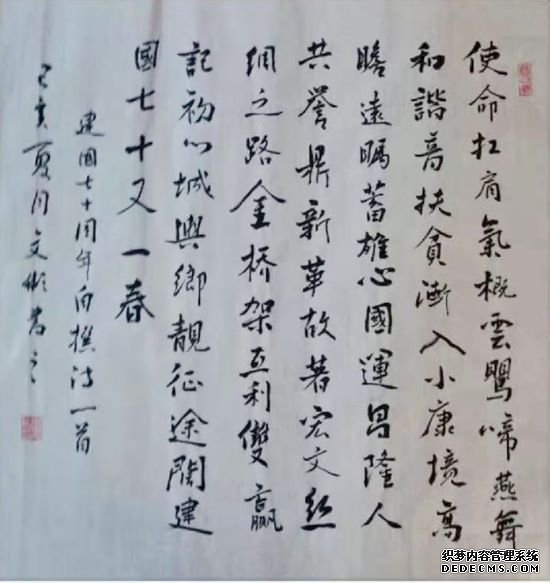 使命扛肩氣概雲鶯啼燕舞
和諧音扶貧漸入小康境高
瞻遠矚蓄雄心國運昌隆人
共譽鼎新革故著宏文丝
綢之路金橋架互利雙贏
記初心城興鄉靚征途闊建
國七十又一春
建國七十周年自撰詩一首
己亥夏月文彬書之
织梦内容管理系统
DEDECMS.COM